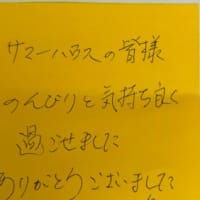 サマーハウスの皆様
のんびりと気持ち良く
過ごせました
ありがとうございました